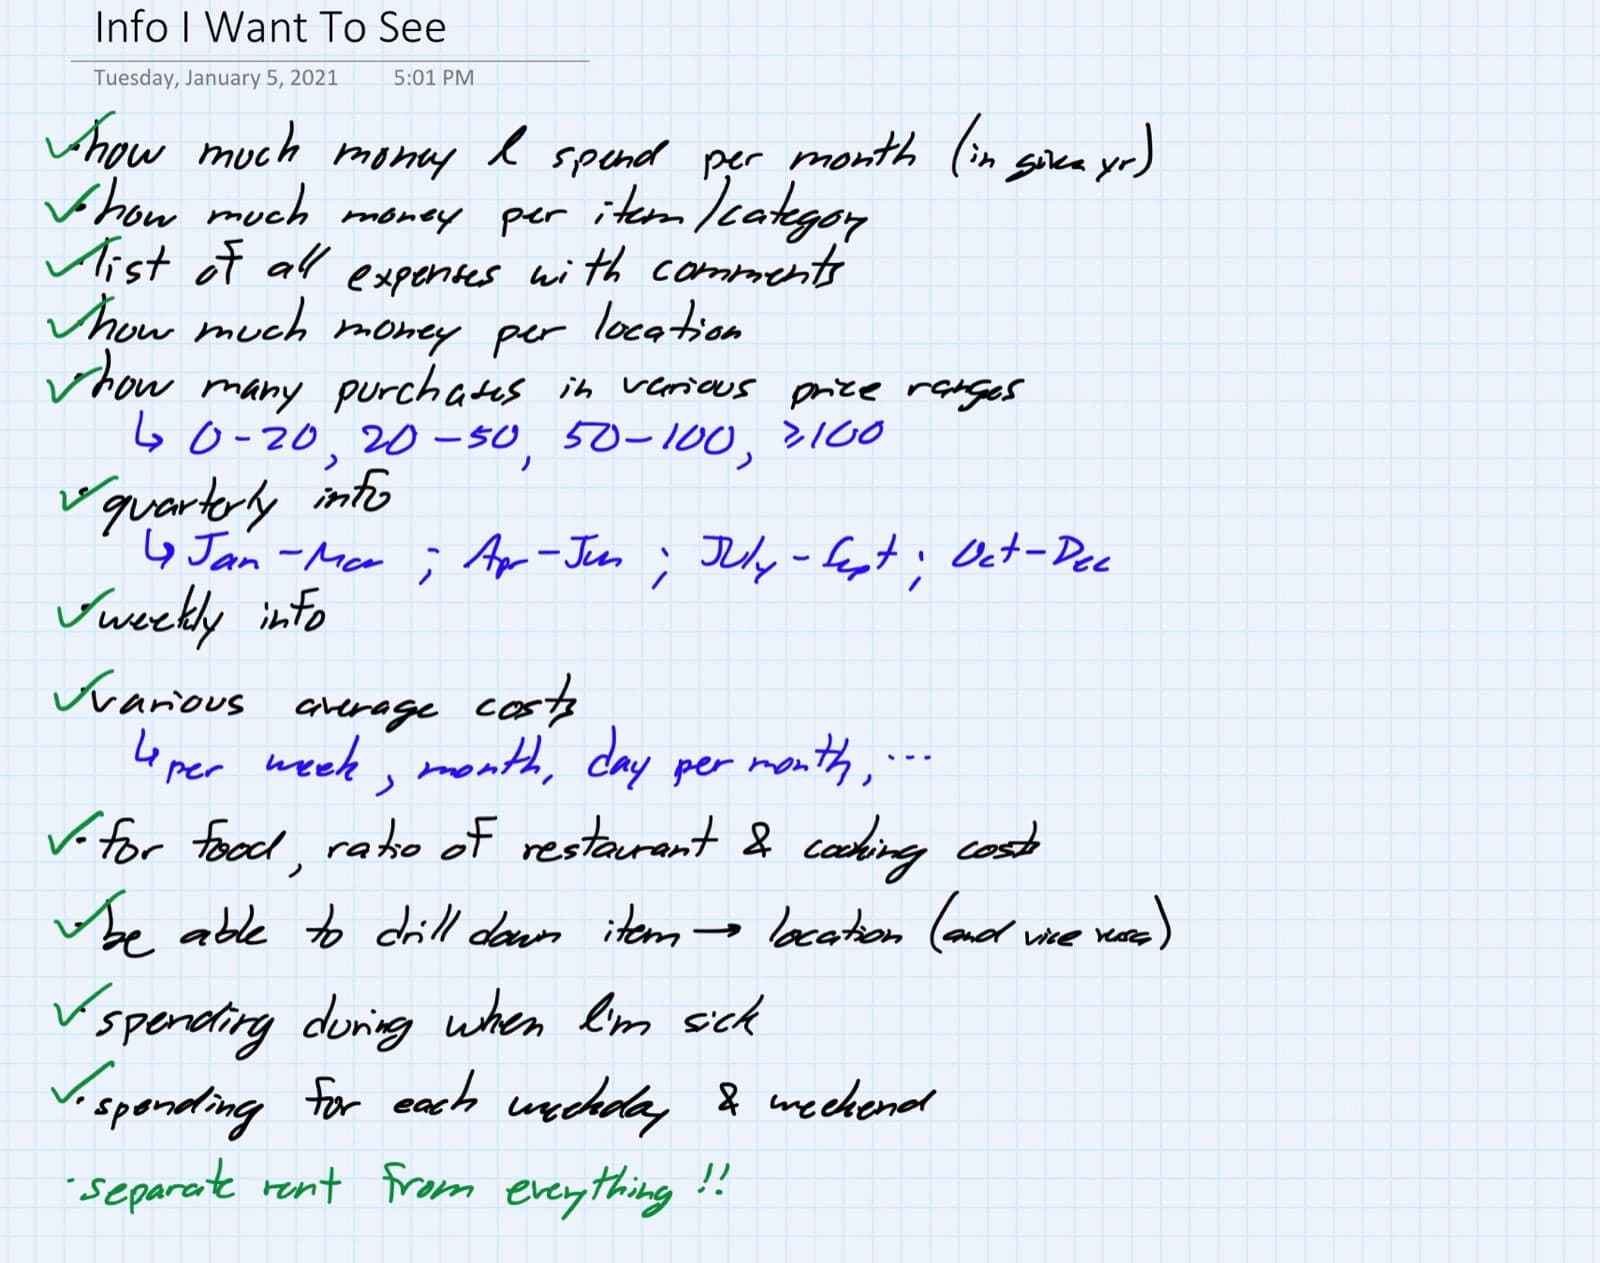 Info I Want To See
Tuesday, January 5, 2021 5:01 PM
✓ · how much money I spend per month (in given yr)
✓ · how much money per item/category
✓ · list of all expenses with comments
✓ · how much money per location
✓ · how many purchases in various price ranges
↳ 0-20, 20-50, 50-100, ≥100
✓ · quarterly info
↳ Jan-Mar ; Apr-Jun ; July-Sept ; Oct-Dec
✓ · weekly info
✓ · various average costs
↳ per week, month, day per month, ...
✓ · for food, ratio of restaurant & cooking costs
✓ · be able to drill down item → location (and vice versa)
✓ · spending during when I'm sick
✓ · spending for each weekday & weekend
· separate rent from everything !!